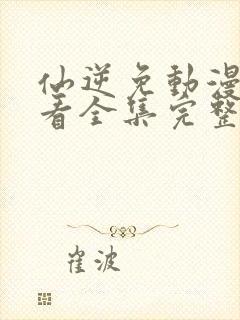 仙逆免動漫
看全集完整
崔波